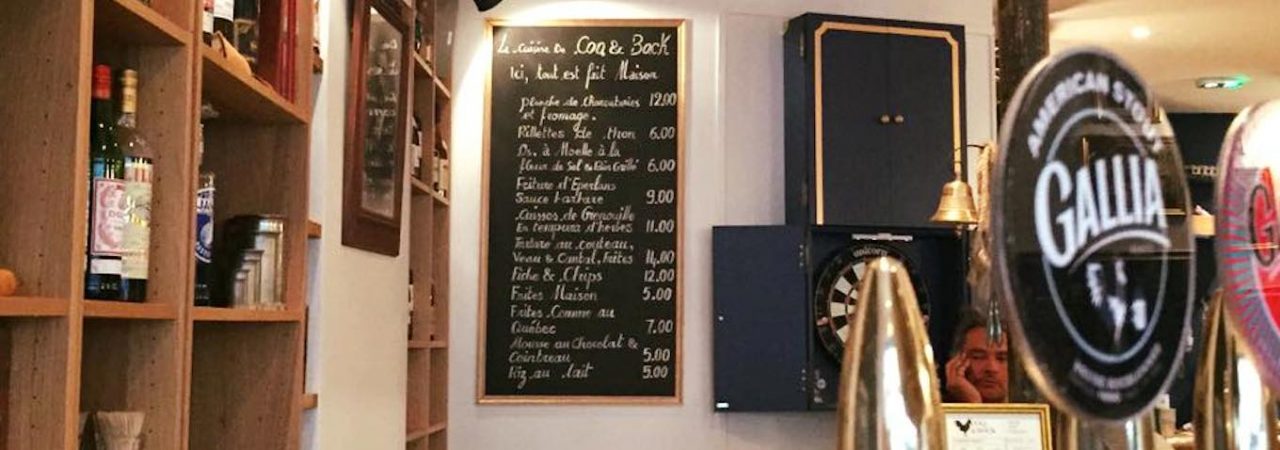 La cuisine De Coq & Bock
Ici, tout est fait Maison
planche de charcuteries 12.00
et fromage.
Rillettes de thon 6.00
Os à Moelle à la
fleur de Sel & Pain Grillé 6.00
Friture d'Eperlans
Sauce tartare 9.00
Cuisses de Grenouille
En tempura d'herbes 11.00
Tartare au couteau,
Veau & Cantal, Frites 14.00
Fiche & Chips 12.00
Frites Maison 5.00
Frites Comme au
Québec 7.00
Mousse au Chocolat &
Cointreau 5.00
Riz au lait 5.00
unicorn
AMERICAN STOUT
GALLIA